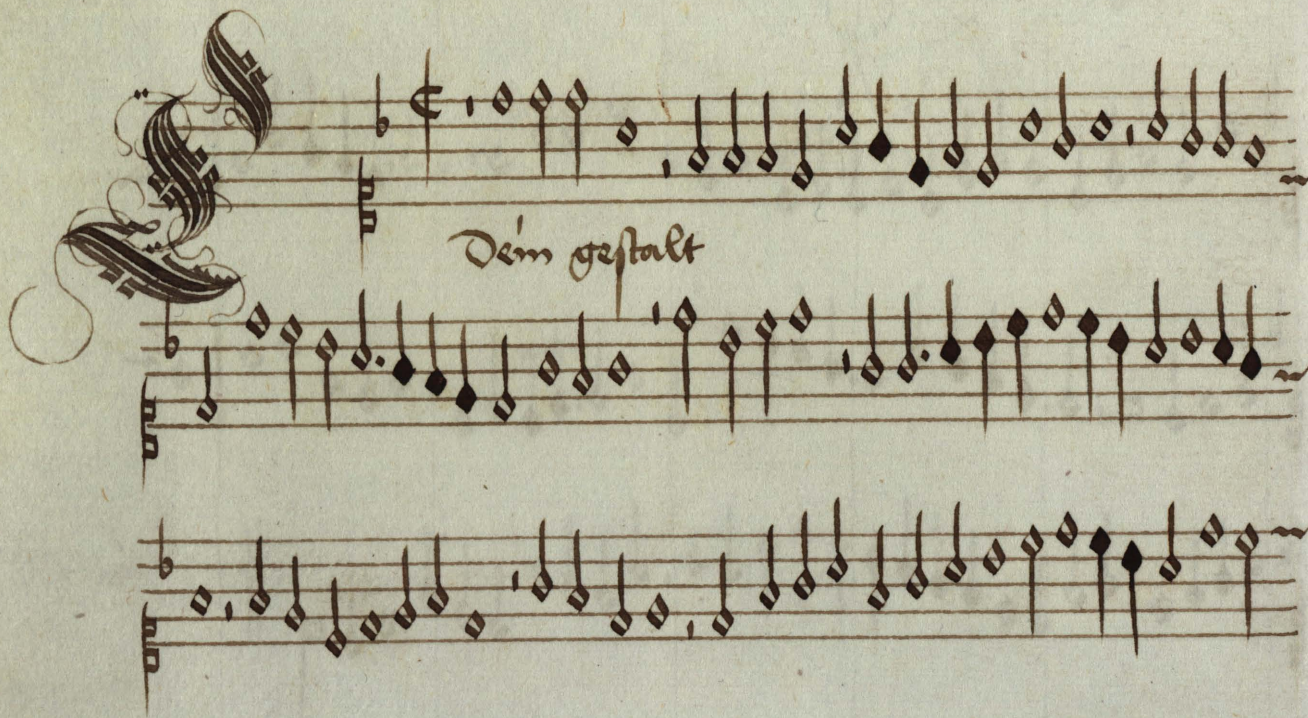 Dein gestalt